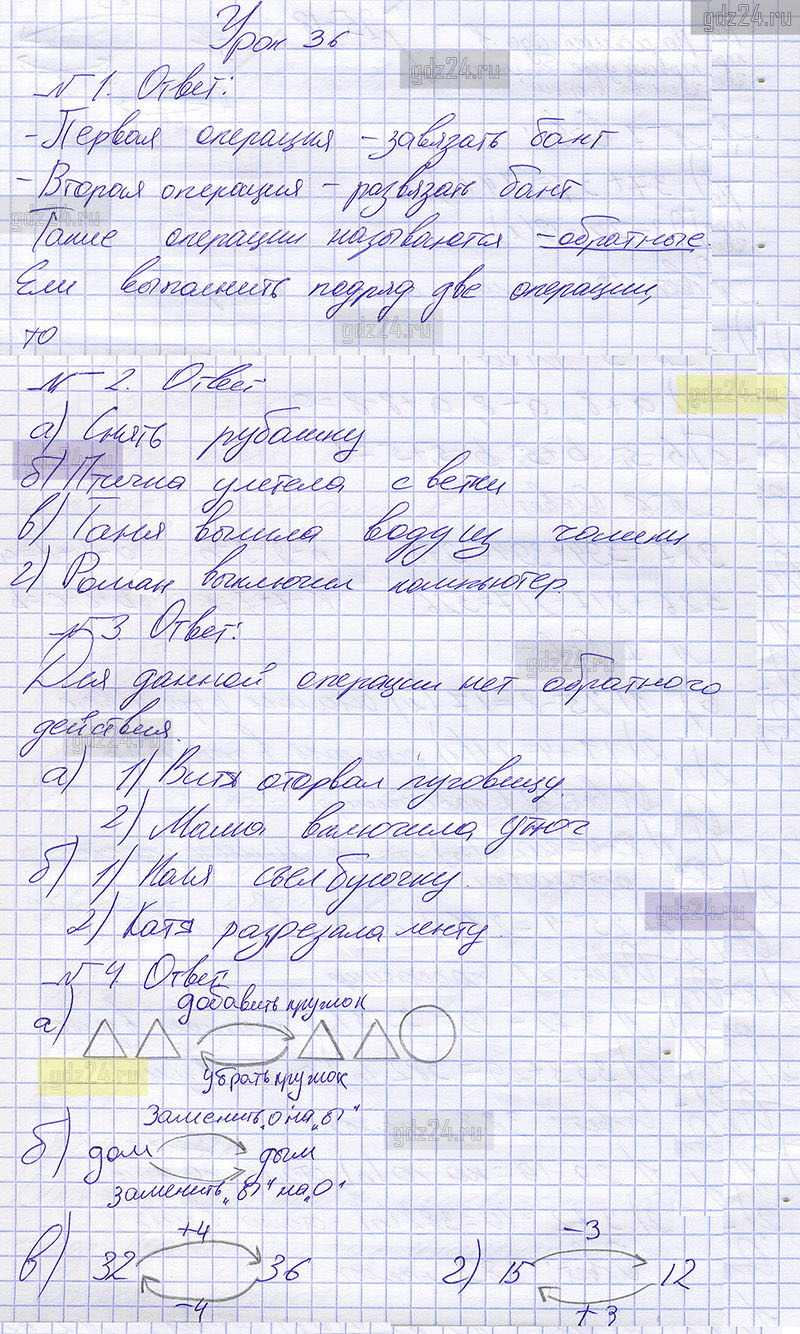 gdz24.ru
Урок 36
gdz24.ru
№ 1. Ответ:
- Первая операция - завязать бант
- Вторая операция - развязать бант
gdz24.ru
Такие операции называются - обратные.
Если выполнить подряд две операции,
gdz24.ru
то
№ 2. Ответ:
gdz24.ru
а) Снять рубашку
gdz24.ru
б) Птичка улетела с ветки
в) Таня вылила воду из чашки
г) Роман выключил компьютер
№ 3. Ответ:
gdz24.ru
Для данной операции нет обратного
действия.
gdz24.ru
а) 1) Витя оторвал пуговицу.
2) Мама включила утюг
б) 1) Коля съел булочку.
gdz24.ru
2) Катя разрезала ленту.
№ 4. Ответ:
добавить кружок
а)
gdz24.ru
убрать кружок
заменить „о" на „ы"
gdz24.ru
б) дом дым
заменить „ы" на „о"
+4 -3
в) 32 36 г) 15 12
-4 +3